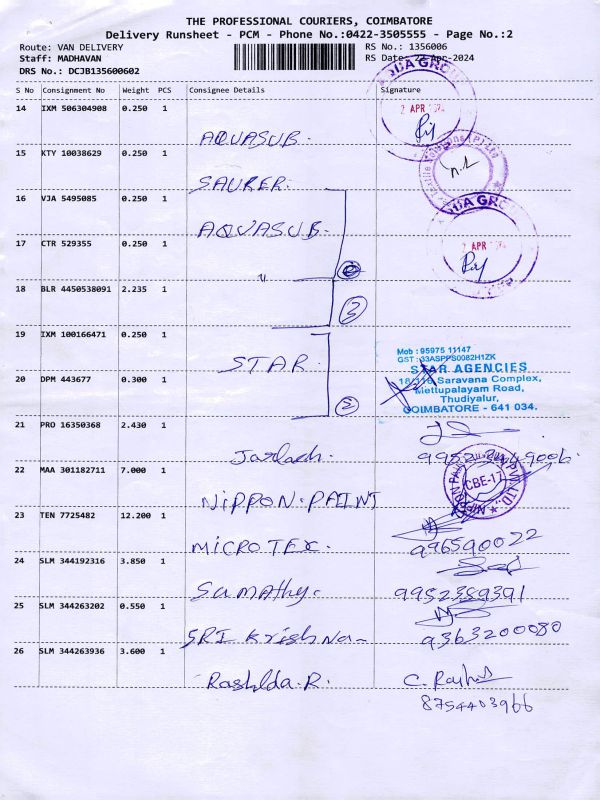 THE PROFESSIONAL COURIERS, COIMBATORE
Delivery Runsheet - PCM - Phone No.:0422-3505555 - Page No.:2
Route: VAN DELIVERY
RS No.: 1356006
Staff: MADHAVAN
RS Date: 22-Apr-2024
DRS No.: DCJB135600602
S No Consignment No Weight PCS Consignee Details Signature
14 IXM 506304908 0.250 1
AQUASUB.
SUBA GROUP
2 APR
15 KTY 10038629 0.250 1
SAURER.
16 VJA 5495085 0.250 1
AQUASUB.
SUBA GRO
17 CTR 529355 0.250 1
2 APR
"
18 BLR 4450538091 2.235 1
3
19 IXM 100166471 0.250 1
STAR.
20 DPM 443677 0.300 1
2
Mob : 95975 11147
GST : 33ASPPS0082H1ZK
STAR AGENCIES
Saravana Complex,
Mettupalayam Road,
Thudiyalur,
COIMBATORE - 641 034.
21 PRO 16350368 2.430 1
22 MAA 301182711 7.000 1
NIPPON PAINT
CBE-17
23 TEN 7725482 12.200 1
MICROTEX.
996590022
24 SLM 344192316 3.850 1
Sumathy.
9952389391
25 SLM 344263202 0.550 1
SRI Krishna
9363200080
26 SLM 344263936 3.600 1
R.
C.
8754403966